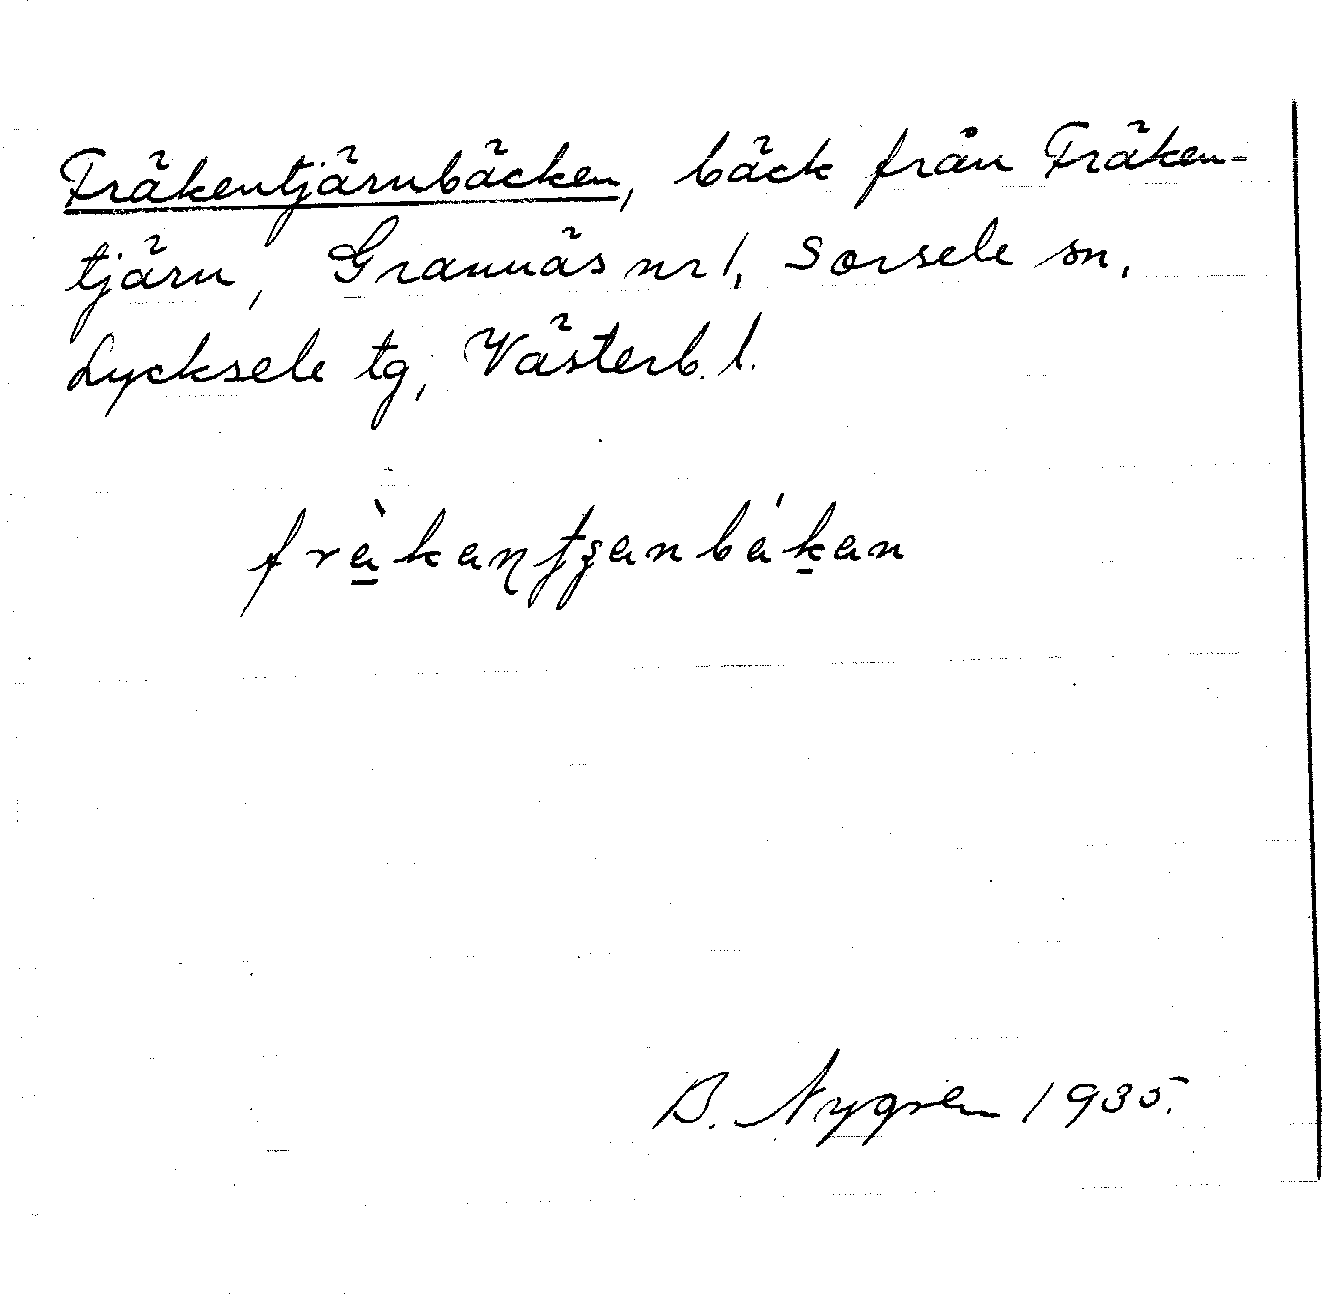 Fräkentjärnbäcken, bäck från Fräken-
tjärn, Grannäs nr 1, Sorsele sn,
Lycksele tg, Västerb. l.
B. Nygren 1935.